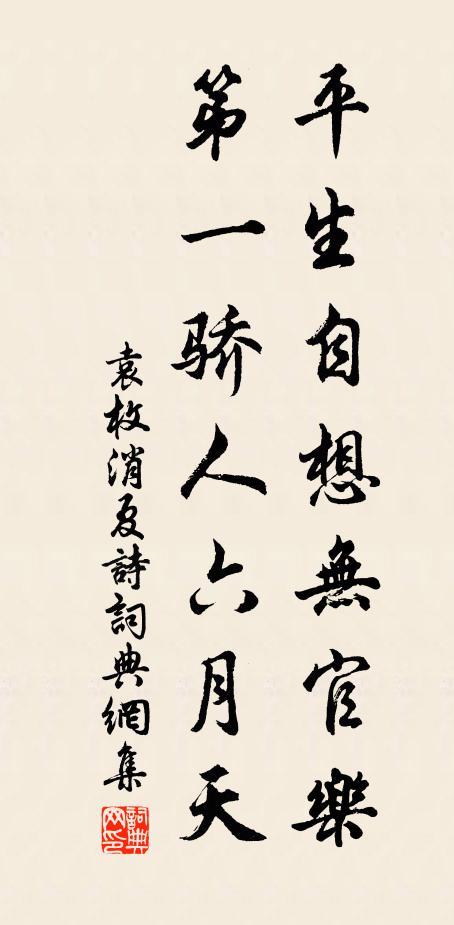 平生自想無官樂
第一骄人六月天
袁枚消夏詩詞典網集
詞典网印